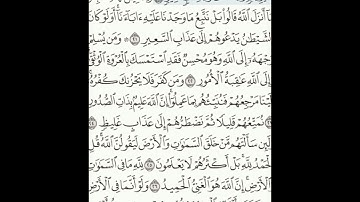 مَآ أَنزَلَ ٱللَّهُ قَالُوا۟ بَلْ نَتَّبِعُ مَا وَجَدْنَا عَلَيْهِ ءَابَآءَنَآ أَوَلَوْ كَانَ
ٱلشَّيْطَٰنُ يَدْعُوهُمْ إِلَىٰ عَذَابِ ٱلسَّعِيرِ ٢١ ۞ وَمَن يُسْلِمْ
وَجْهَهُۥٓ إِلَى ٱللَّهِ وَهُوَ مُحْسِنٌ فَقَدِ ٱسْتَمْسَكَ بِٱلْعُرْوَةِ ٱلْوُثْقَىٰ
وَإِلَى ٱللَّهِ عَٰقِبَةُ ٱلْأُمُورِ ٢٢ وَمَن كَفَرَ فَلَا يَحْزُنكَ كُفْرُهُۥٓ
إِلَيْنَا مَرْجِعُهُمْ فَنُنَبِّئُهُم بِمَا عَمِلُوٓا۟ إِنَّ ٱللَّهَ عَلِيمٌۢ بِذَاتِ ٱلصُّدُورِ
٢٣ نُمَتِّعُهُمْ قَلِيلًا ثُمَّ نَضْطَرُّهُمْ إِلَىٰ عَذَابٍ غَلِيظٍ ٢٤
وَلَئِن سَأَلْتَهُم مَّنْ خَلَقَ ٱلسَّمَٰوَٰتِ وَٱلْأَرْضَ لَيَقُولُنَّ ٱللَّهُ قُلِ
ٱلْحَمْدُ لِلَّهِ بَلْ أَكْثَرُهُمْ لَا يَعْلَمُونَ ٢٥ لِلَّهِ مَا فِى ٱلسَّمَٰوَٰتِ
وَٱلْأَرْضِ إِنَّ ٱللَّهَ هُوَ ٱلْغَنِىُّ ٱلْحَمِيدُ ٢٦ وَلَوْ أَنَّمَا فِى ٱلْأَرْضِ